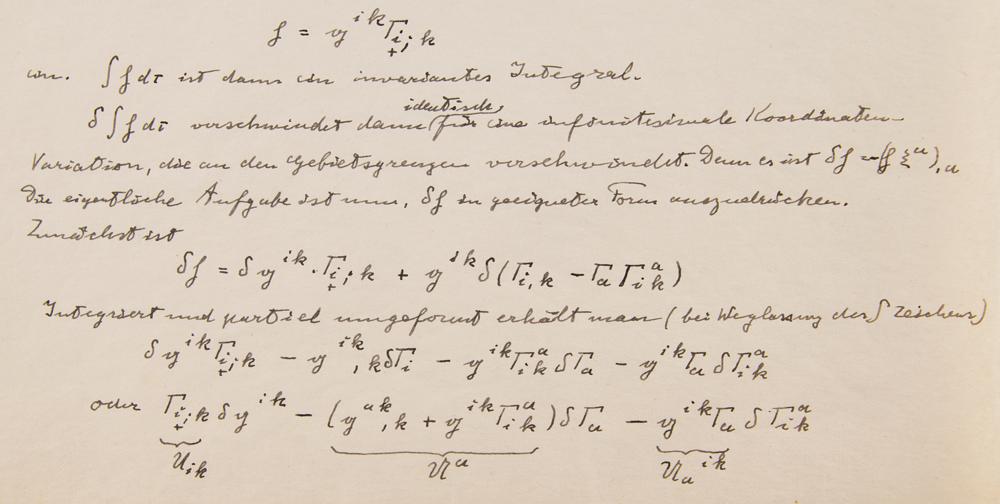 𝔣 = 𝔤^{ik} Γ_{i;k}
um. ∫𝔣 dτ ist dann ein invariantes Integral.
identisch
δ∫𝔣 dτ verschwindet dann für eine infinitesimale Koordinaten-
Variation, die an den Gebietsgrenzen verschwindet. Denn es ist δ𝔣 = (𝔣 ξ^a)_{,a}
Die eigentliche Aufgabe ist nun, δ𝔣 in geeigneter Form auszudrücken.
Zunächst ist
δ𝔣 = δ𝔤^{ik}·Γ_{i;k} + 𝔤^{ik} δ(Γ_{i,k} − Γ_a Γ_{ik}^a)
Integriert und partiel umgeformt erhält man (bei Weglassung des ∫ Zeichens)
δ𝔤^{ik} Γ_{i;k} − 𝔤^{ik}_{,k} δΓ_i − 𝔤^{ik} Γ_{ik}^a δΓ_a − 𝔤^{ik} Γ_a δΓ_{ik}^a
oder Γ_{i;k} δ𝔤^{ik} − (𝔤^{ak}_{,k} + 𝔤^{ik} Γ_{ik}^a) δΓ_a − 𝔤^{ik} Γ_a δΓ_{ik}^a
U_{ik} 𝔄^a 𝔄_a^{ik}